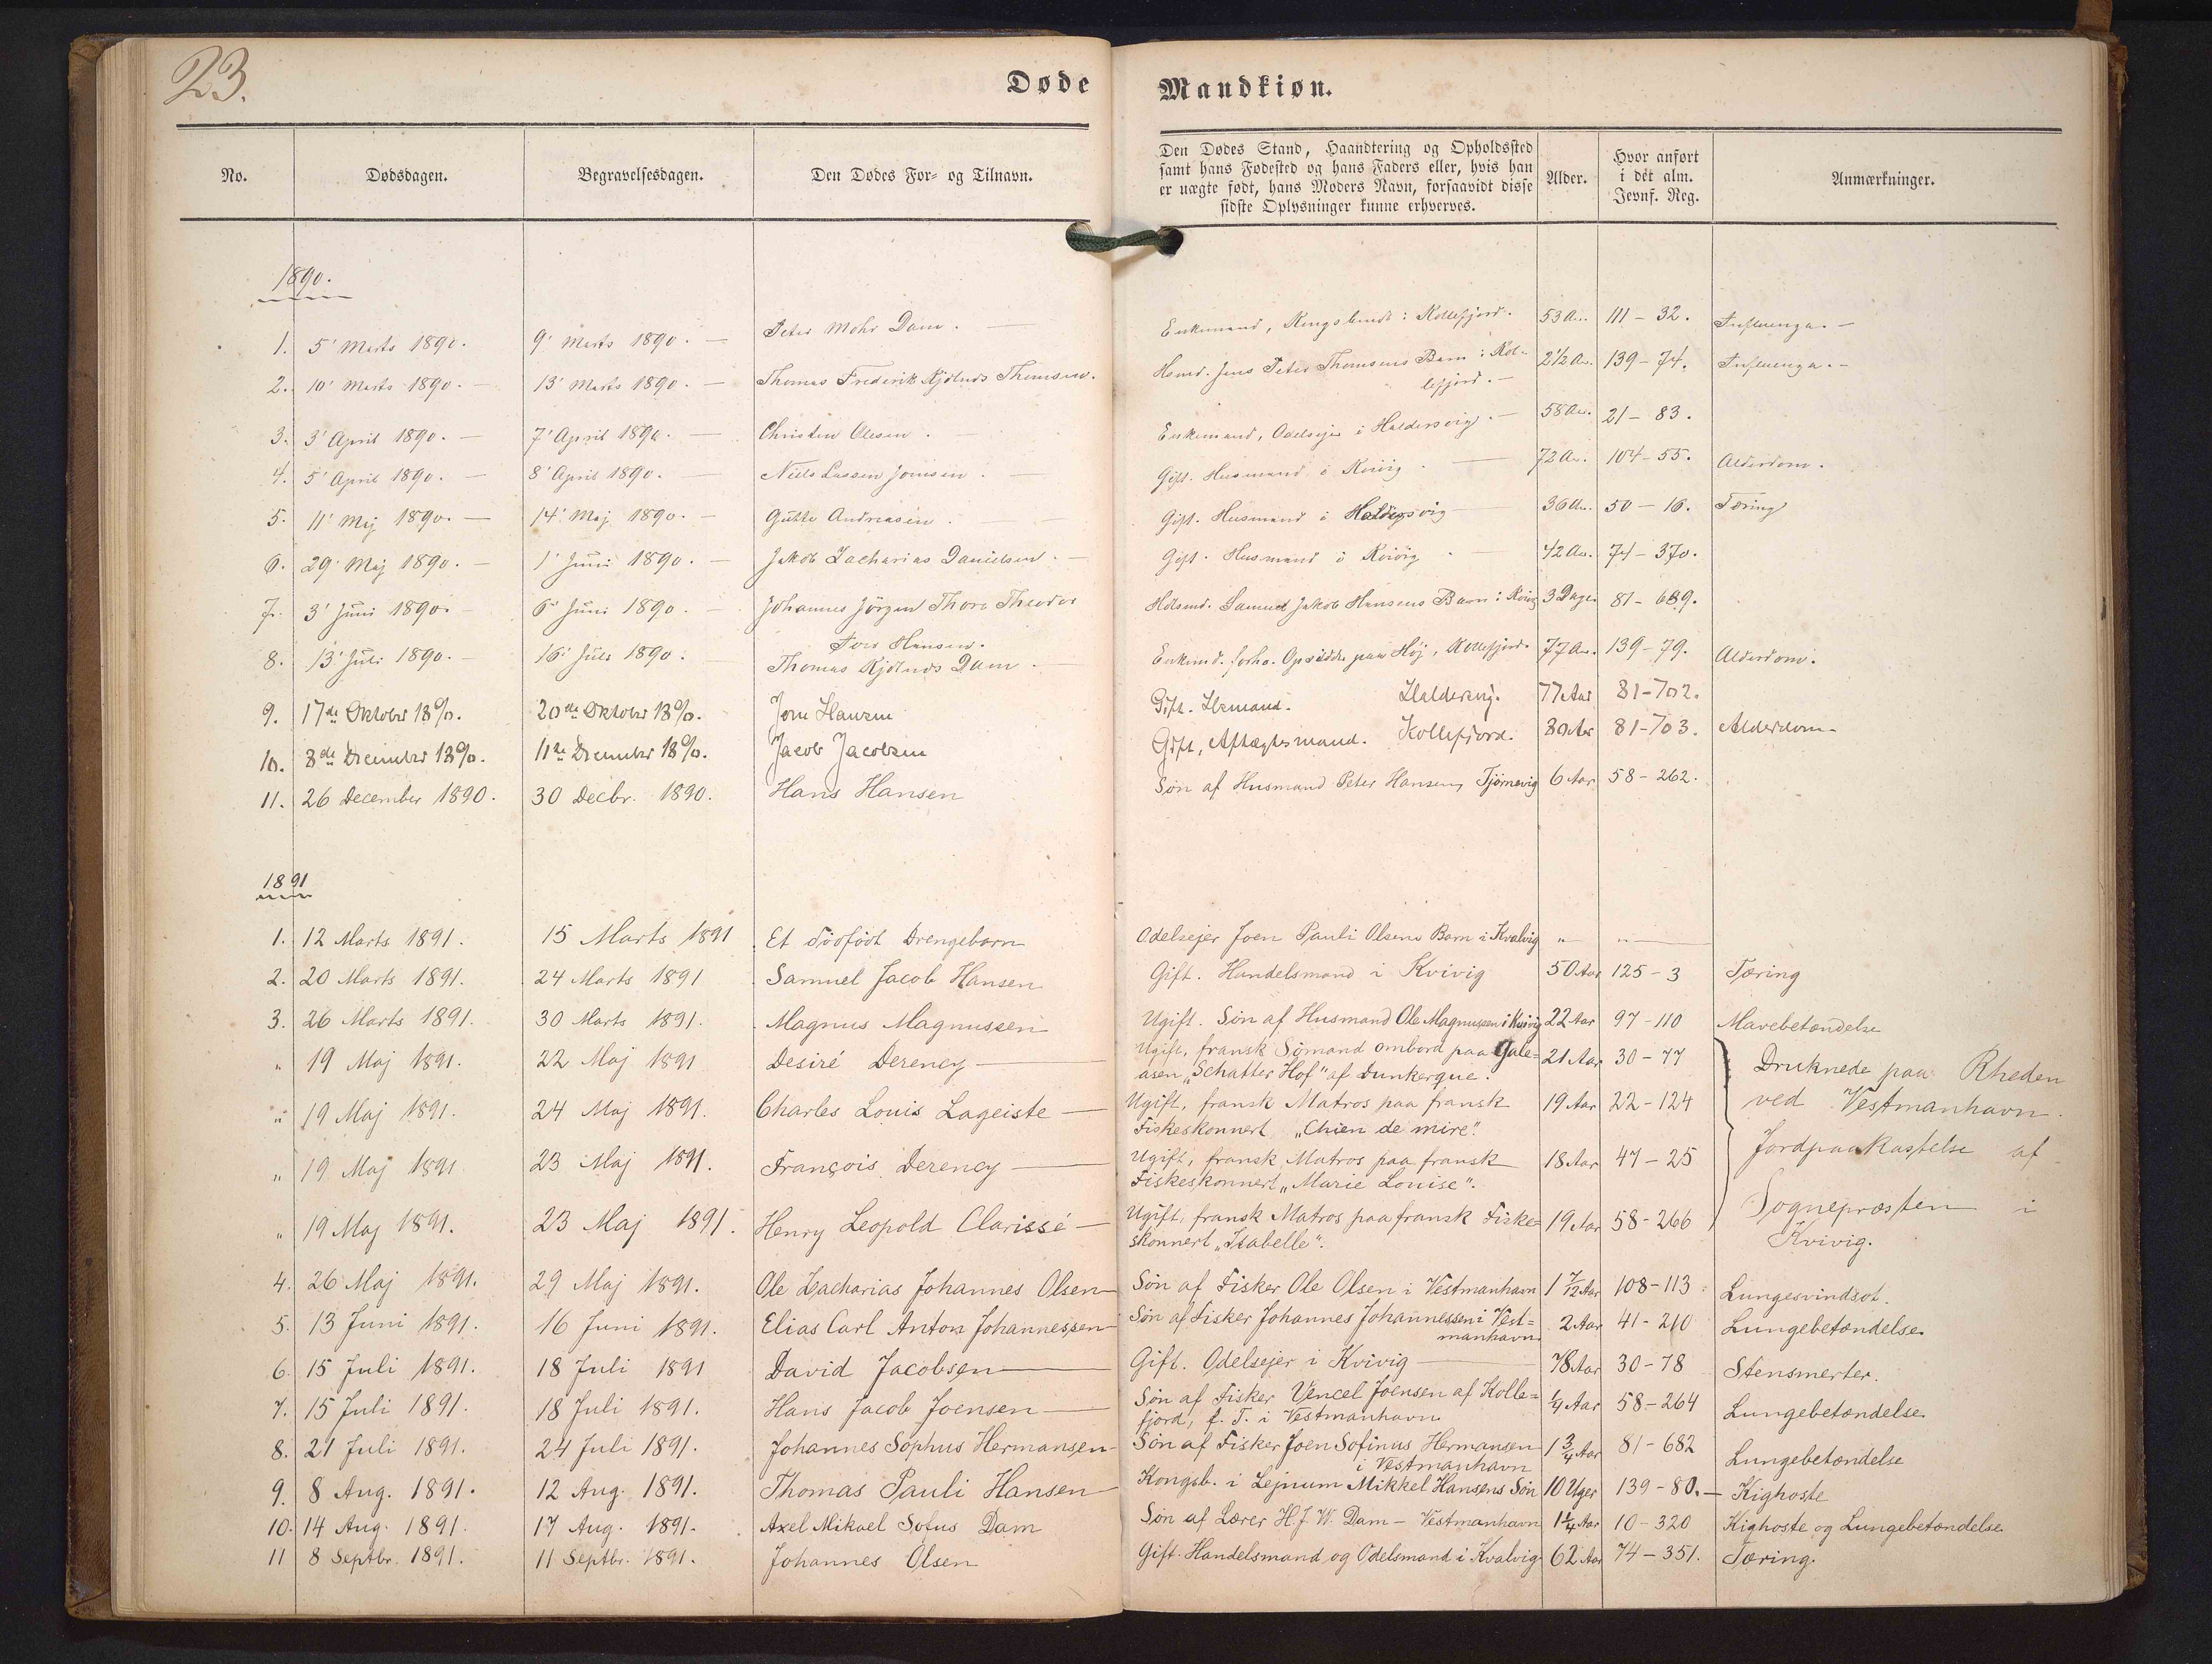 23.
Døde Mandkiøn.
No. Dødsdagen. Begravelsesdagen. Den Dødes For- og Tilnavn. Den Dødes Stand, Haandtering og Opholdssted
samt hans Fødested og hans Faders eller, hvis han
er uægte født, hans Moders Navn, forsaavidt disse
sidste Oplysninger kunne erhverves. Alder. Hvor anført
i det alm.
Jevnf. Reg. Anmærkninger.
1890.
1. 5' Marts 1890. 9' Marts 1890. Peter Mohr Dam. Enkemand, Kongsbonde i Kollefjord. 53 Aar. 111-32. Influenza.
2. 10' Marts 1890. 13' Marts 1890. Thomas Frederik Kjølnds Thomsen. Hsmd. Jens Peter Thomsens Barn i Kol-
lefjord. 2 1/2 Aar. 139-74. Influenza.
3. 3' April 1890. 7' April 1890. Christen Olesen. Enkemand, Odelsejer i Haldersvig. 58 Aar. 21-83.
4. 5' April 1890. 8' April 1890. Niels Lassen Joensen. Gift. Husmand i Kvivig. 72 Aar. 104-55. Alderdom.
5. 11' Maj 1890. 14' Maj 1890. Gutte Andreasen. Gift. Husmand i Haldersvig 36 Aar. 50-16. Tæring
6. 29' Maj 1890. 1' Juni 1890. Jakob Zacharias Danielsen. Gift. Husmand i Kvivig. 42 Aar. 74-370.
7. 3' Juni 1890. 6' Juni 1890. Johannes Jörgen Thore Theodor
Hansen. Hdlsmd. Samuel Jakob Hansens Barn i Kvivig 3 Dage 81-689.
8. 13' Juli 1890. 16' Juli 1890. Thomas Kjølnds Dam. Enkemd. forhv. Opsidder paa Høj, Kollefjord. 77 Aar. 139-79. Alderdom.
9. 17de Oktober 18 90. 20de Oktober 18 90. Jone Hansen Gift. Hsmand. Haldersvig. 77 Aar 81-702.
10. 8de December 18 90. 11te December 18 90. Jacob Jacobsen Gift, Aftægtsmand. Kollefjord. 80 Aar 81-703. Alderdom.
11. 26 December 1890. 30 Decbr. 1890. Hans Hansen Søn af Husmand Peter Hansen, Tjørnevig 6 Aar 58-262.
1891
1. 12 Marts 1891. 15 Marts 1891 Et dødfødt Drengebarn Odelsejer Joen Pauli Olsens Barn i Kvalvig " "
2. 20 Marts 1891. 24 Marts 1891 Samuel Jacob Hansen Gift. Handelsmand i Kvivig 50 Aar 125-3 Tæring
3. 26 Marts 1891. 30 Marts 1891. Magnus Magnussen Ugift. Søn af Husmand Ole Magnussen i Kvivig 22 Aar 97-110 Mavebetændelse
" 19 Maj 1891. 22 Maj 1891 Desiré Derency Ugift, fransk Sømand ombord paa Gale=
asen „Schatter Hof" af Dunkerque. 21 Aar 30-77 Druknede paa Rheden
" 19 Maj 1891. 24 Maj 1891. Charles Louis Lageiste Ugift, fransk Matros paa fransk
Fiskeskonnert „Chien de mire". 19 Aar 22-124 ved Vestmanhavn.
" 19 Maj 1891 23 Maj 1891. François Derency Ugift, fransk Matros paa fransk
Fiskeskonnert „Marie Louise". 18 Aar 47-25 Jordpaakastelse af
" 19 Maj 1891. 23 Maj 1891. Henry Leopold Clarissé Ugift, fransk Matros paa fransk Fiske=
skonnert „Isabelle". 19 Aar 58-266 Sognepræsten i
Kvivig.
4. 26 Maj 1891. 29 Maj 1891. Ole Zacharias Johannes Olsen Søn af Fisker Ole Olsen i Vestmanhavn 1 7/12 Aar 108-113 Lungesvindsot.
5. 13 Juni 1891. 16 Juni 1891. Elias Carl Anton Johannessen Søn af Fisker Johannes Johannessen i Vest=
manhavn 2 Aar 41-210 Lungebetændelse
6. 15 Juli 1891. 18 Juli 1891 David Jacobsen Gift. Odelsejer i Kvivig 78 Aar 30-78 Stensmerter.
7. 15 Juli 1891. 18 Juli 1891. Hans Jacob Joensen Søn af Fisker Vencel Joensen af Kolle=
fjord, f. T. i Vestmanhavn 1/4 Aar 58-264 Lungebetændelse
8. 21 Juli 1891. 24 Juli 1891. Johannes Sophus Hermansen Søn af Fisker Joen Sofinus Hermansen
i Vestmanhavn 1 3/4 Aar 81-682 Lungebetændelse
9. 8 Aug. 1891. 12 Aug. 1891. Thomas Pauli Hansen Kongsb. i Lejnum Mikkel Hansens Søn 10 Uger 139-80. Kighoste
10. 14 Aug. 1891. 17 Aug. 1891. Axel Mikael Sofus Dam Søn af Lærer H. J. W. Dam - Vestmanhavn 1 1/4 Aar 10-320 Kighoste og Lungebetændelse
11 8 Septbr. 1891. 11 Septbr. 1891. Johannes Olsen Gift. Handelsmand og Odelsmand i Kvalvig 62 Aar 74-351. Tæring.